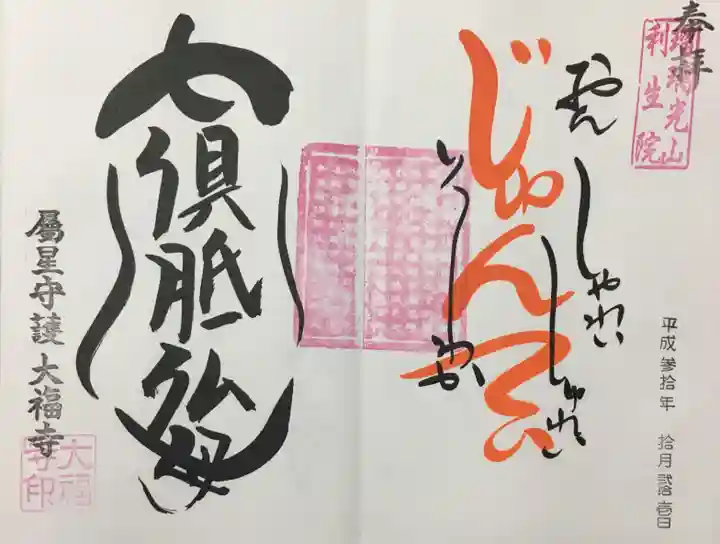 奉拝
瑠璃光山
利生院
平成参拾年 拾月貳拾壱日
おん
しゃれい
しゅれい
じゅんてい
そわか
七倶胝仏母
屬星守護 大福寺
大福
寺印